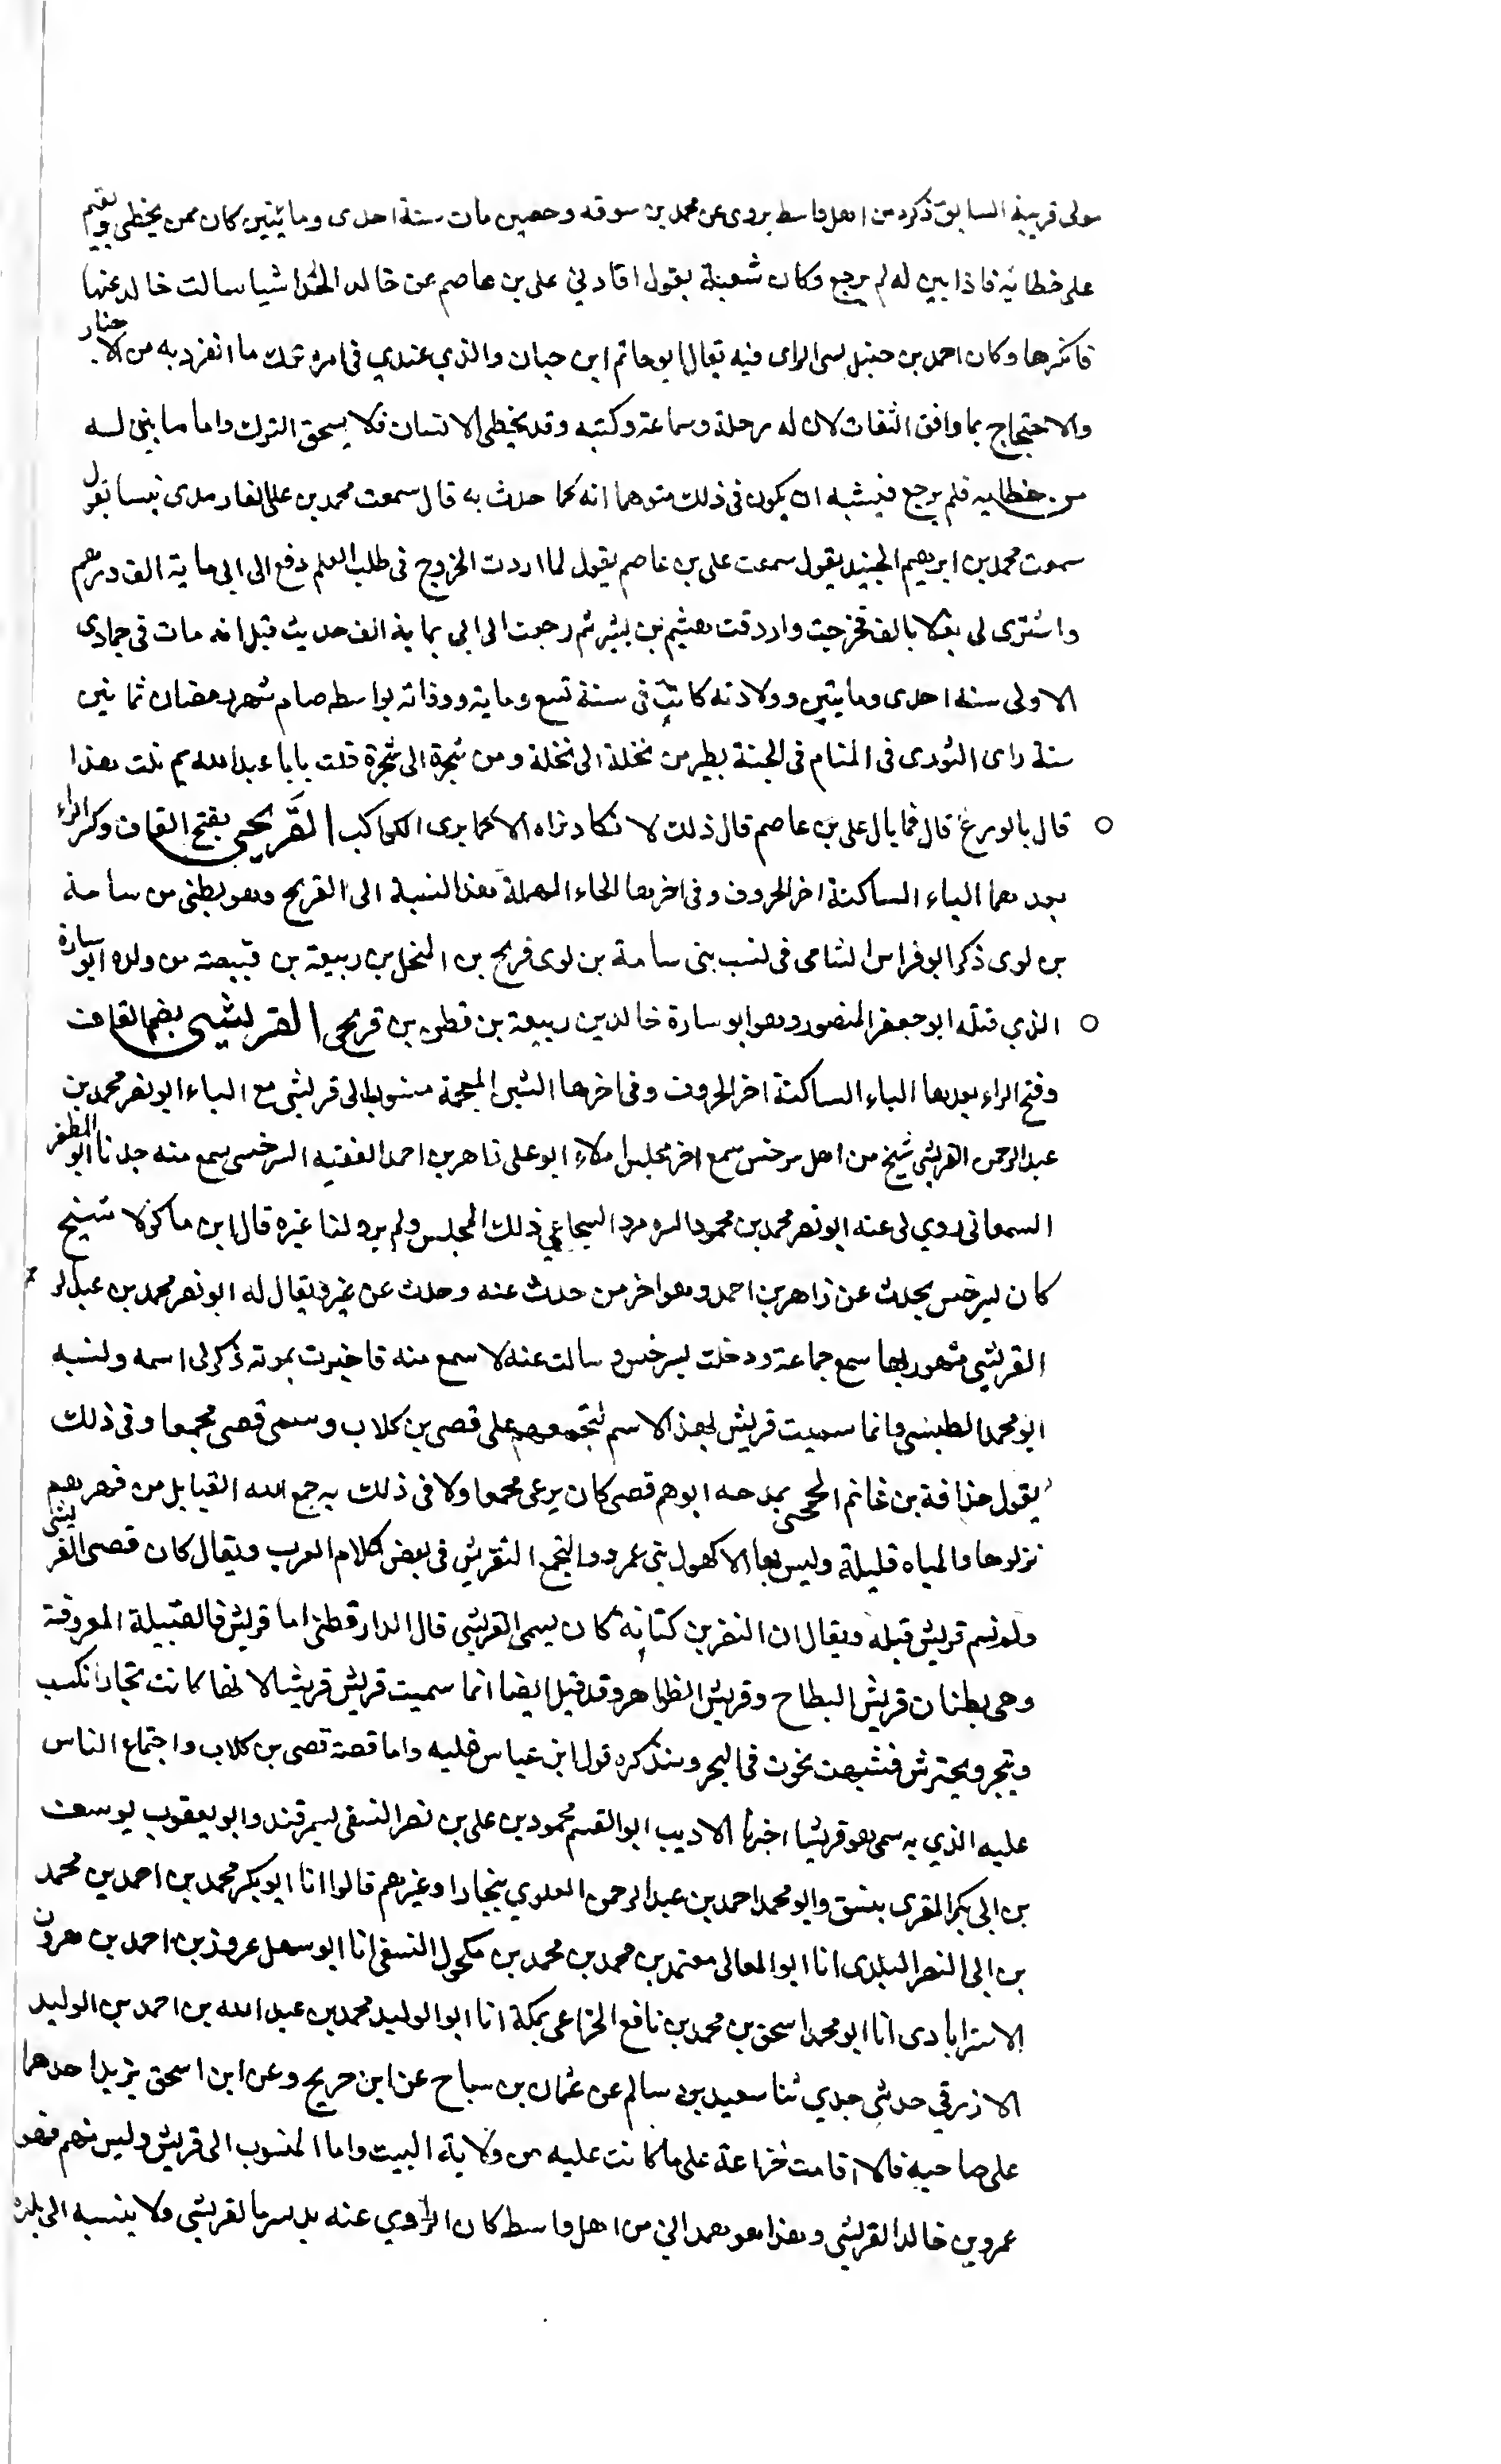 مولى قريبة السابق ذكره من اهل واسط يروى عن محمد بن سوقه وحصين مات سنة احدى ومائتين كان ممن يخطى ويقيم
على خطائه فاذا بين له لم يرجع وكان شعبة يقول افادنى على بن عاصم عن خالد الحذا اشيا سالت خالد عنها
فانكرها وكان احمد بن حنبل سى الراى فيه يقال ابو حاتم ابن حبان والذي عندي فى امره ترك ما انفرد به من الاخبار
والاحتجاج بما وافق الثقات لان له رحلة وسماعة وكتبه وقد يخطى الانسان فلا يسحق الترك واما ما بين لـه
من خطايه فلم يرجع فيشبه ان يكون فى ذلك متوهما انه كما حدث به قال سمعت محمد بن على الفارمدى يقول
سمعت محمد بن ابرهيم الجنيد يقول سمعت على بن عاصم يقول لما اردت الخروج فى طلب العلم دفع الى ابى ماية الف درهم
واشترى لى بغلا بالف فخرجت واردفت هشيم بن بشير ثم رجعت الى ابى بماية الف حديث قيل انه مات فى جمادى
الاولى سنة احدى ومايتين وولادته كانت فى سنة تسع وماية ووفاته بواسط صام شهر رمضان ثمانين
سنة راى الثورى فى المنام فى الجنة يطير من نخلة الى نخلة ومن شجرة الى شجرة قلت يابا عبد الله بم نلت هذا
قال بالورع قال فما بال على بن عاصم قال ذلك لا نكاد نراه الا كما يرى الكواكب القَريحى بفتح القاف وكسر الراء
بعدهما الياء الساكنة اخر الحروف وفى اخرها الحاء المهملة هذا النسبة الى القريح وهو بطن من سامة
بن لوى ذكر ابو فراس الشامى فى نسب بنى سامة بن لوى قريح بن المنخل بن ربيعة بن قبيصة من ولده ابو سارة
الذي قتله ابو جعفر المنصور وهو ابو سارة خالد بن ربيعة بن قطن بن قريحى القريشى بضم القاف
وفتح الراء بعدها الياء الساكنة اخر الحروف وفى اخرها الشين المعجمة منسوب الى قريشى مع الياء ابو نصر محمد بن
عبد الرحمن القريشى شيخ من اهل سرخس سمع اخر مجلس املاء ابو على زاهر بن احمد الفقيه السرخسى سمع منه جدنا ابو المظفر
السمعانى روي لى عنه ابو نصر محمد بن محمود السره مرد الشجاعي ذلك المجلس ولم يرو لنا غيره قال ابن ماكولا شيخ
كان بسرخس يحدث عن زاهر بن احمد وهو اخر من حدث عنه وحدث عن غيره يقال له ابو نصر محمد بن عبد الر حمن
القريشى مشهور بها سمع جماعة ودخلت بسرخس وسالت عنه لا سمع منه فاخبرت بموته ذكر لى اسمه ونسبه
ابو محمد الطبسى وانما سميت قريش بهذا الاسم لتجمعهم على قصى بن كلاب وسمى قصى مجمعا وفى ذلك
يقول حذافة بن غانم الجمحى يمدحه ابوهم قصى كان يدعى مجمعا ولا فى ذلك به جمع الله القبايل من فهر هم
نزلوها والمياه قليلة وليس بها الا كهول بنى عمرو والتجمع التقريش فى بعض كلام العرب ويقال كان قصى القريشى
ولم تسم قريش قبله ويقال ان النضر بن كنانة كان يسمى القريشى قال الدارقطنى اما قريش فالقبيلة المعروفة
وهى بطنان قريش البطاح وقريش الظواهر وقد قيل ايضا انما سميت قريش قريشا لانها كانت تجارا تكسب
وتتجر وتحترش فشبهت بحوت فى البحر وسنذكره قول ابن عباس فليه واما قصة قصى بن كلاب واجتماع الناس
عليه الذي به سمى هو قريشا اخبرنا الاديب ابو القسم محمود بن على بن نصر النسفى بسمرقند وابو يعقوب يوسف
بن ابى بكر المقرى بنسق وابو محمد احمد بن عبد الرحمن العلوي ببخارا وغيرهم قالوا انا ابو بكر محمد بن احمد بن محمد
بن ابى النصر البلدى انا ابو المعالى معتمد بن محمد بن محمد بن مكحول النسفى انا ابو سهل هرون بن احمد بن هرون
الاسترابادى انا ابو محمد اسحق بن محمد بن نافع الخزاعى بمكة انا ابو الوليد محمد بن عبد الله بن احمد بن الوليد
الازرقي حدثى جدي ثنا سعيد بن سالم عن عثمان بن ساج عن ابن جريج وعن ابن اسحق يزيد احدهما
على صاحبه قالا اقامت خزاعة على ما كانت عليه من ولاية البيت واما المنسوب الى قريش وليس منهم فهو
عمرو بن خالد القريشى وهذا هو همدانى من اهل واسط كان الراوي عنه يدلسه بالقريشى ولا ينسبه الى بلده